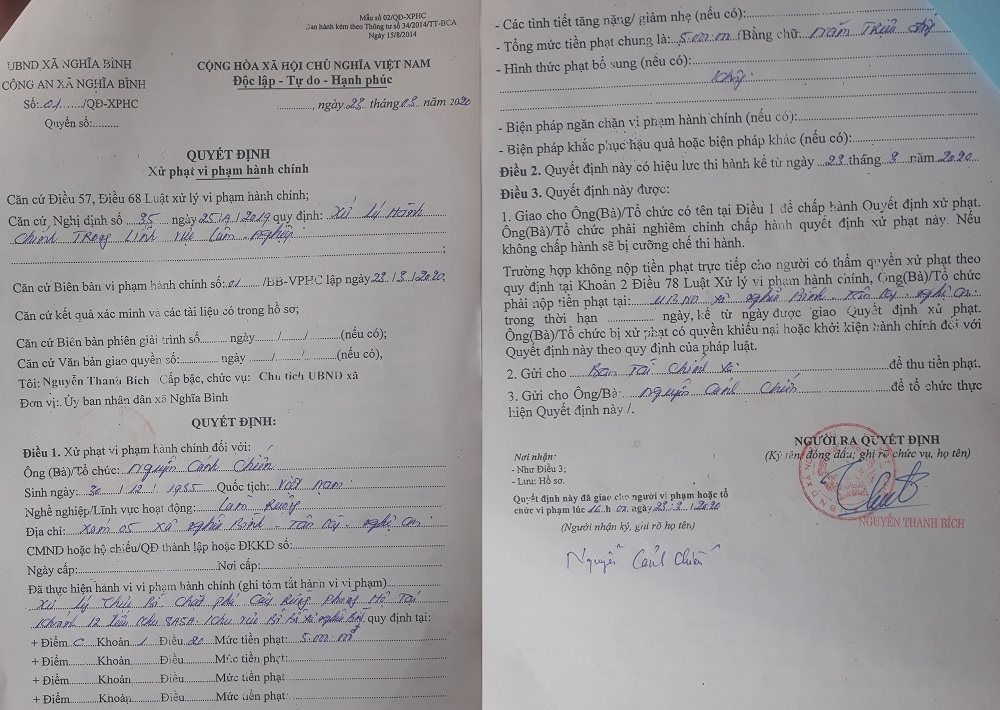 Mẫu số 02/QĐ-XPHC
Ban hành kèm theo Thông tư số 34/2014/TT-BCA
Ngày 15/8/2014
UBND XÃ NGHĨA BÌNH
CÔNG AN XÃ NGHĨA BÌNH
Số:.01....../QĐ-XPHC
Quyển số:.........
CỘNG HÒA XÃ HỘI CHỦ NGHĨA VIỆT NAM
Độc lập - Tự do - Hạnh phúc
............, ngày 23 tháng 03. năm 2020
QUYẾT ĐỊNH
Xử phạt vi phạm hành chính
Căn cứ Điều 57, Điều 68 Luật xử lý vi phạm hành chính;
Căn cứ Nghị định số ...35... ngày 25/4/2019 quy định: Xử lý Hành
chính Trong Lĩnh vực Lâm nghiệp
Căn cứ Biên bản vi phạm hành chính số: 01 .../BB-VPHC lập ngày 23/3/2020;
Căn cứ kết quả xác minh và các tài liệu có trong hồ sơ;
Căn cứ Biên bản phiên giải trình số......... ngày ....../......./.........(nếu có);
Căn cứ Văn bản giao quyền số:.......... ngày ....../......./.........(nếu có),
Tôi: Nguyễn Thanh Bích Cấp bậc, chức vụ: Chủ tịch UBND xã
Đơn vị: Ủy ban nhân dân xã Nghĩa Bình
QUYẾT ĐỊNH:
Điều 1. Xử phạt vi phạm hành chính đối với:
Ông (Bà)/Tổ chức: Nguyễn Cảnh Chiến
Sinh ngày: 30 / 12 / 1985 Quốc tịch: Việt Nam
Nghề nghiệp/Lĩnh vực hoạt động: Làm Ruộng
Địa chỉ: Xóm 05 Xã Nghĩa Bình - Tân Kỳ - Nghệ An
CMND hoặc hộ chiếu/QĐ thành lập hoặc ĐKKD số:
Ngày cấp: Nơi cấp:
Đã thực hiện hành vi vi phạm hành chính (ghi tóm tắt hành vi vi phạm)
Xử lý Chặt phá Cây Rừng phòng Hộ Tại
Khoảnh 12 quy định tại:
+ Điểm C Khoản 1 Điều 20 Mức tiền phạt: 5.000.000đ
+ Điểm Khoản Điều Mức tiền phạt:
+ Điểm Khoản Điều Mức tiền phạt
+ Điểm Khoản Điều Mức tiền phạt:
- Các tình tiết tăng nặng/ giảm nhẹ (nếu có):
- Tổng mức tiền phạt chung là: 5.000.000 (Bằng chữ: năm Triệu đồng
- Hình thức phạt bổ sung (nếu có):
Không
- Biện pháp ngăn chặn vi phạm hành chính (nếu có):
- Biện pháp khắc phục hậu quả hoặc biện pháp khác (nếu có):
Điều 2. Quyết định này có hiệu lực thi hành kể từ ngày 23 tháng 3 năm 2020
Điều 3. Quyết định này được:
1. Giao cho Ông(Bà)/Tổ chức có tên tại Điều 1 để chấp hành Quyết định xử phạt.
Ông(Bà)/Tổ chức phải nghiêm chỉnh chấp hành quyết định xử phạt này. Nếu
không chấp hành sẽ bị cưỡng chế thi hành.
Trường hợp không nộp tiền phạt trực tiếp cho người có thẩm quyền xử phạt theo
quy định tại Khoản 2 Điều 78 Luật Xử lý vi phạm hành chính, Ông(Bà)/Tổ chức
phải nộp tiền phạt tại: UBND xã Nghĩa Bình - Tân Kỳ - Nghệ An
trong thời hạn .............. ngày, kể từ ngày được giao Quyết định xử phạt.
Ông(Bà)/Tổ chức bị xử phạt có quyền khiếu nại hoặc khởi kiện hành chính đối với
Quyết định này theo quy định của pháp luật.
2. Gửi cho Ban Tài Chính xã để thu tiền phạt.
3. Gửi cho Ông/Bà: Nguyễn Cảnh Chiến để tổ chức thực
hiện Quyết định này ./.
Nơi nhận:
- Như Điều 3;
- Lưu: Hồ sơ.
Quyết định này đã giao cho người vi phạm hoặc tổ
chức vi phạm lúc 16.h 02 ngày 23/3/2020
(Người nhận ký, ghi rõ họ tên)
Nguyễn Cảnh Chiến
NGƯỜI RA QUYẾT ĐỊNH
(Ký tên, đóng dấu; ghi rõ chức vụ, họ tên)
NGUYỄN THANH BÍCH